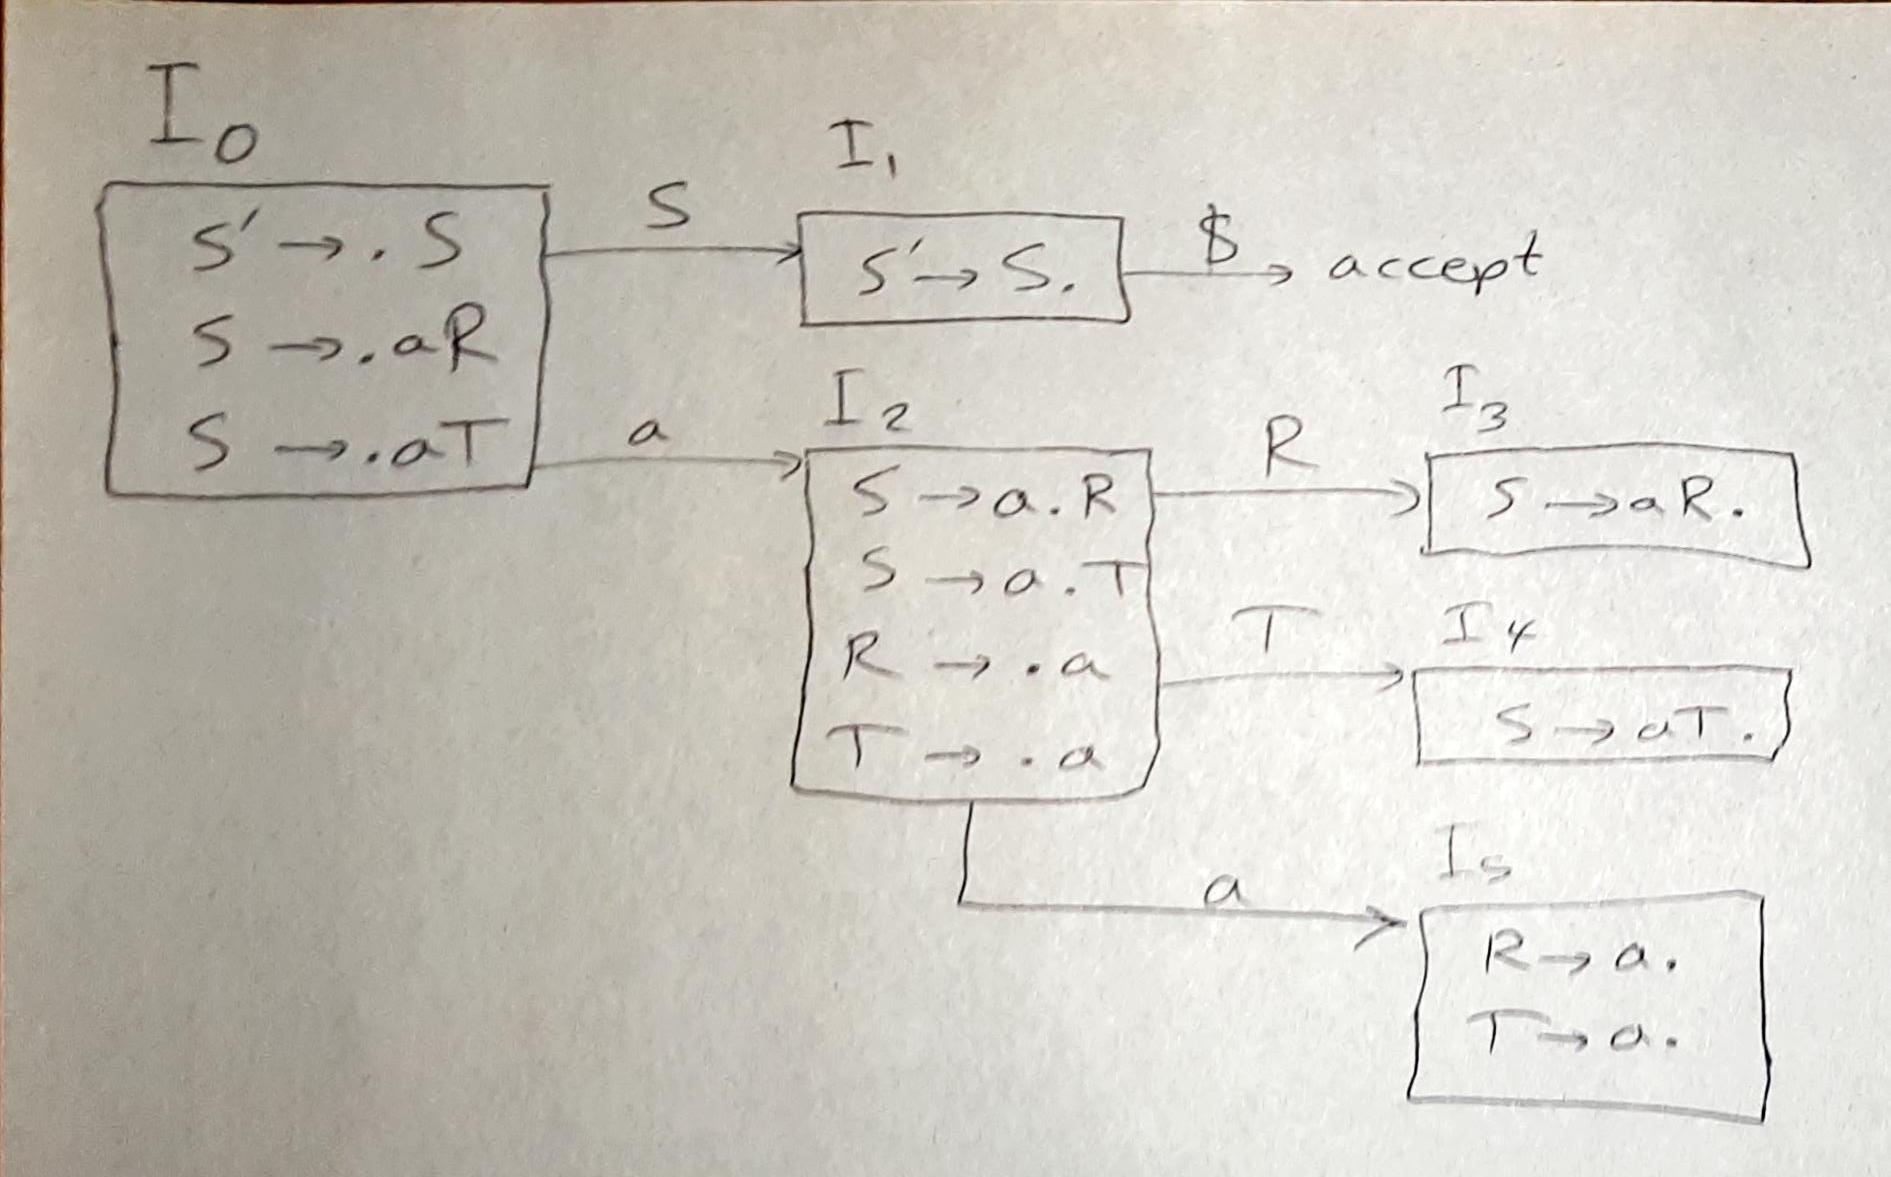 I₀
S′ → . S
S → . aR
S → . aT
S
a
I₁
S′ → S.
$
accept
I₂
S → a . R
S → a . T
R → . a
T → . a
R
T
a
I₃
S → aR .
I₄
S → aT .
I₅
R → a .
T → a .